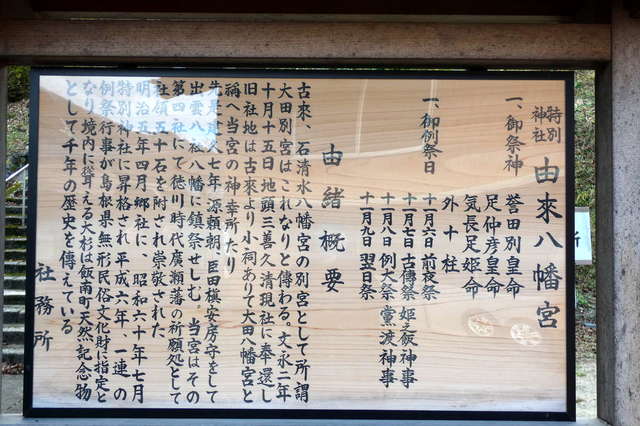 特別神社 由來八幡宮
一、御祭神 誉田別皇命
足仲彦皇命
気長足姫命
外十柱
一、御例祭日
十一月六日 前夜祭
十一月七日 古傳祭 姫之飯神事
十一月八日 例大祭 當渡神事
十一月九日 翌日祭
由緒概要
古來、石清水八幡宮の別宮として所謂
大田別宮はこれなりと傳わる。文永二年
十月十五日地頭三善久清現社に奉還し
旧社地は古來より小祠ありて大田八幡宮と
稱へ当宮の神幸所たり
七年 源頼朝、臣田槙安房守をして
出雲八社八幡に鎮祭せしむ。当宮はその
第四社にて徳川時代廣瀬藩の祈願処として
社領五十石を附され崇敬された
明治五年四月郷社に、昭和六十年七月
特別神社に昇格され平成六年、一連の
例祭行事が島根県無形民俗文化財に指定と
なり境内に聳える大杉は飯南町天然記念物
として千年の歴史を傳えている
社務所